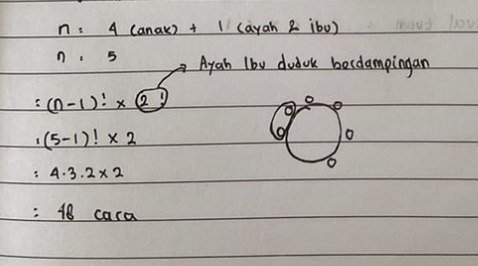 n = 4 (anak) + 1 (ayah & ibu)
n = 5
Ayah Ibu duduk berdampingan
= (n-1)! × 2!
= (5-1)! × 2
= 4.3.2 × 2
= 48 cara